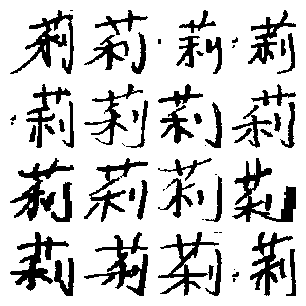 莉莉莉莉
莉莉莉莉
莉莉莉莉
莉莉莉莉